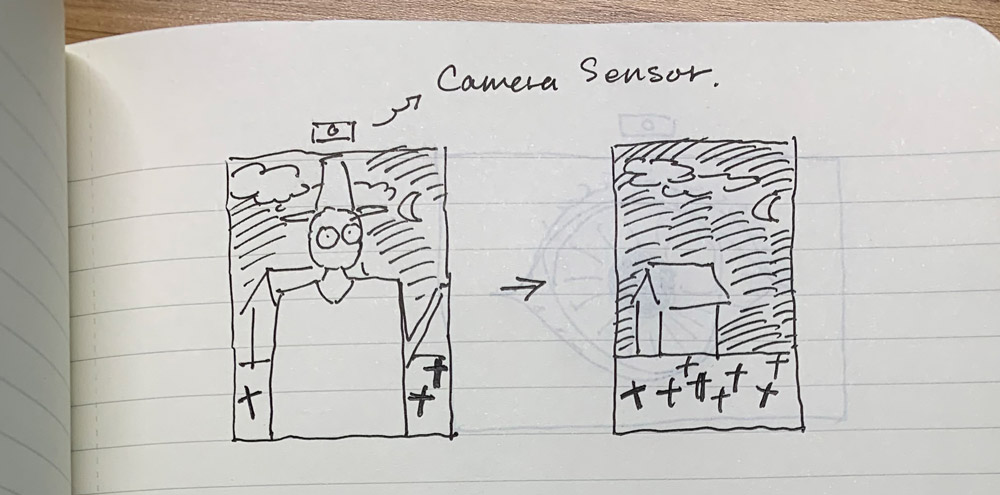 Camera Sensor.